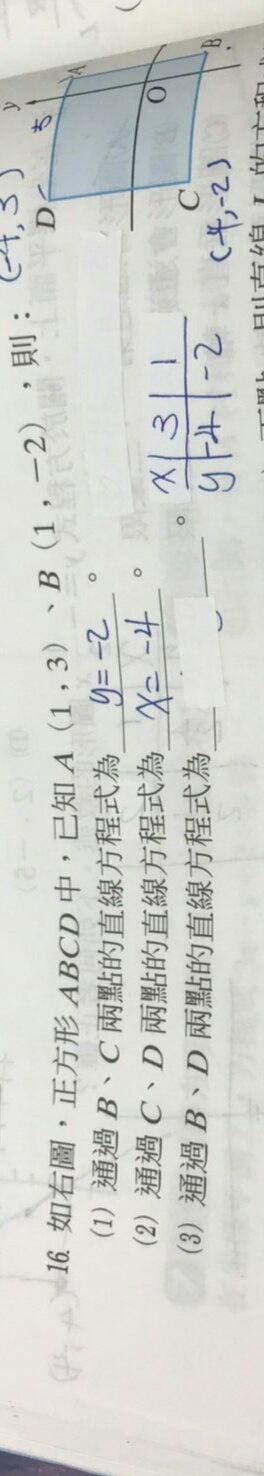 16. 如右圖,正方形 ABCD 中,已知 A(1,3)、B(1,-2),則:
(1) 通過 B、C 兩點的直線方程式為 y=-2 。
(2) 通過 C、D 兩點的直線方程式為 x=-4 。
(3) 通過 B、D 兩點的直線方程式為 。
x 3 1
y -4 -2
(-4,3)
(-4,-2)
y
A
B
C
D
O
5